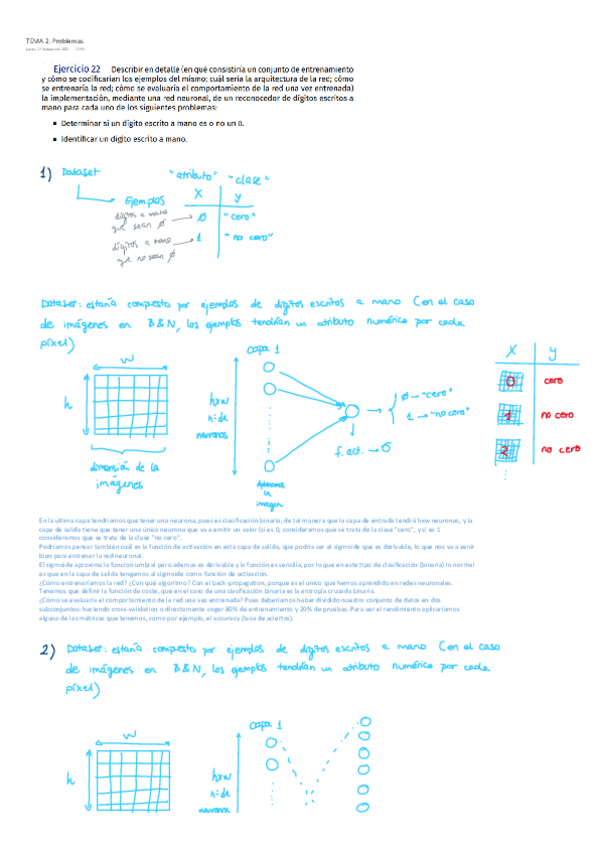 TEMA 2. Problemas
Ejercicio 22 Describir en detalle (en qué consistiría un conjunto de entrenamiento
y cómo se codificarían los ejemplos del mismo; cuál sería la arquitectura de la red; cómo
se entrenaría la red; cómo se evaluaría el comportamiento de la red una vez entrenada)
la implementación, mediante una red neuronal, de un reconocedor de dígitos escritos a
mano para cada uno de los siguientes problemas:
Determinar si un dígito escrito a mano es o no un 0.
Identificar un dígito escrito a mano.
1) Dataset
"atributo" "clase"
Ejemplos X y
dígitos a mano que sean 0 → 0 "cero"
dígitos a mano que no sean 0 → 1 "no cero"
Dataset: estaría compuesto por ejemplos de dígitos escritos a mano (en el caso
de imágenes en B&N, los ejemplos tendrían un atributo numérico por cada
píxel)
w
h
dimensión de la
imágenes
Capa 1
hxw
n= de
neuronas
0 → "cero"
1 → "no cero"
f. act. → σ
imagen
X y
0 cero
1 no cero
2 no cero
En la última capa tendríamos que tener una neurona, pues es clasificación binaria, de tal manera que la capa de entrada tendrá hxw neuronas, y la
capa de salida tiene que tener una única neurona que va a emitir un valor (si es 0, consideramos que se trata de la clase "cero", y si es 1
consideramos que se trata de la clase "no cero".
Podríamos pensar también cuál es la función de activación en esta capa de salida, que podría ser el sigmoide que es derivable, lo que nos va a venir
bien para entrenar la red neuronal.
El sigmoide aproxima la funcion umbral pero ademas es derivable y la función es sencilla, por lo que en este tipo de clasificación (binaria) lo normal
es que en la capa de salida tengamos al sigmoide como función de activación.
¿Cómo entrenaríamos la red? ¿Con qué algoritmo? Con el back-propagation, porque es el único que hemos aprendido en redes neuronales.
Tenemos que definir la función de coste, que en el caso de una clasificación binaria es la entropía cruzada binaria.
¿Cómo se evaluaría el comportamiento de la red una vez entrenada? Pues deberíamos haber dividido nuestro conjunto de datos en dos
subconjuntos: haciendo cross-validation o directamente coger 80% de entrenamiento y 20% de pruebas. Para ver el rendimiento aplicaríamos
alguna de las métricas que tenemos, como por ejemplo, el accuracy (tasa de aciertos).
2) Dataset: estaría compuesto por ejemplos de dígitos escritos a mano (en el caso
de imágenes en B&N, los ejemplos tendrían un atributo numérico por cada
píxel)
w
h
Capa 1
hxw
n= de
neuronas